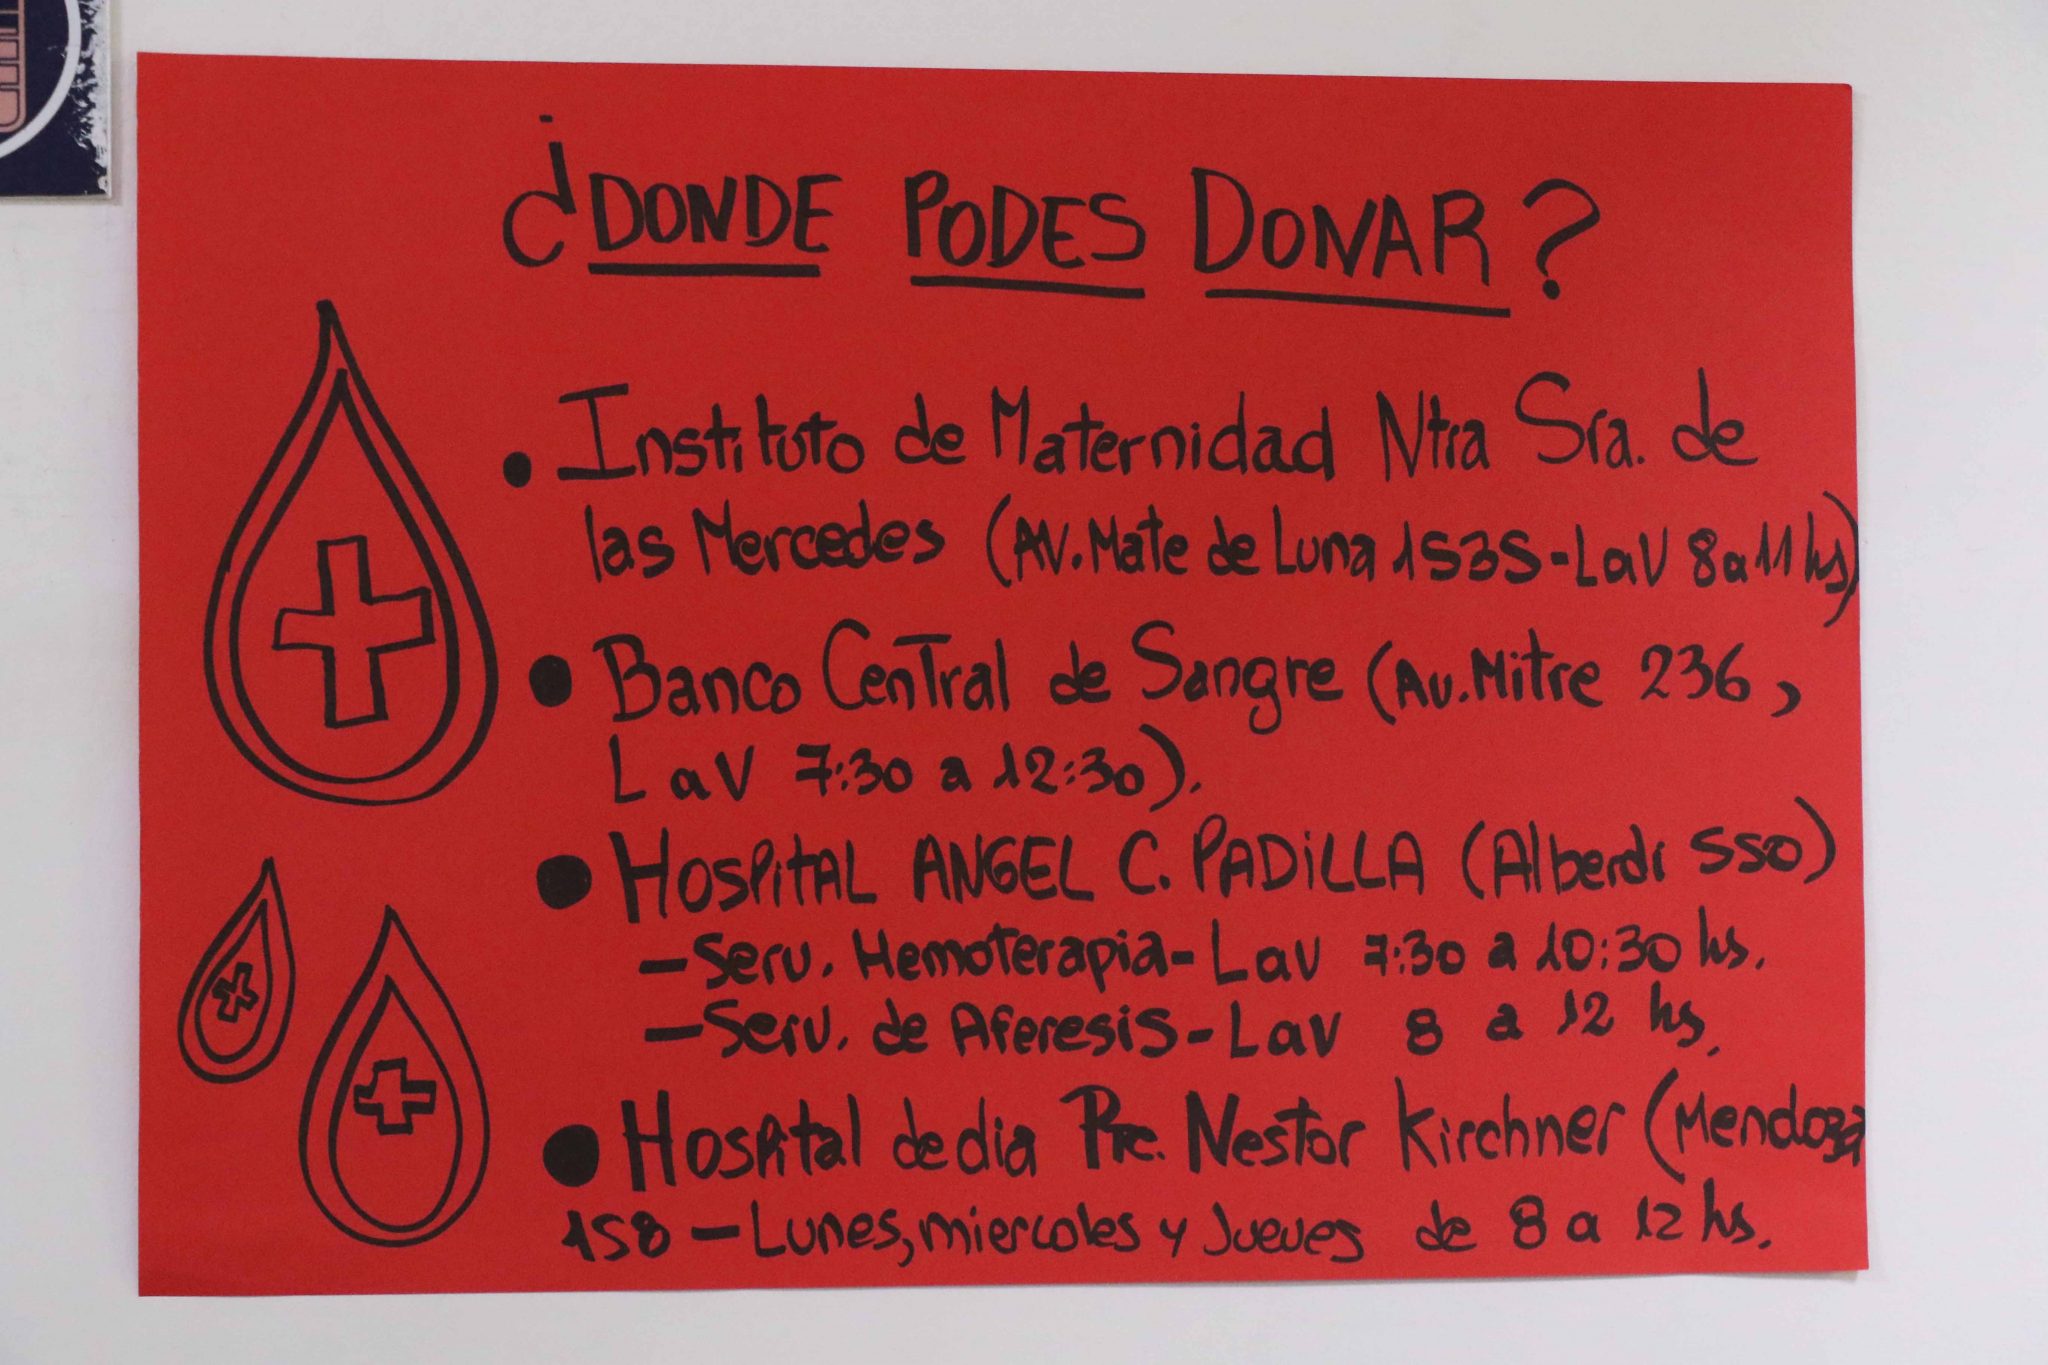 ¿DONDE PODES DONAR?
• Instituto de Maternidad Ntra Sra. de
las Mercedes (AV. Mate de Luna 1535 - LaV 8 a 11 hs)
• Banco Central de Sangre (Av. Mitre 236,
LaV 7:30 a 12:30).
• HOSPITAL ANGEL C. PADILLA (Alberdi 550)
- Serv. Hemoterapia - LaV 7:30 a 10:30 hs.
- Serv. de Aferesis - LaV 8 a 12 hs.
• Hospital de dia Pte. Nestor Kirchner (Mendoza
158 - Lunes, miercoles y Jueves de 8 a 12 hs.